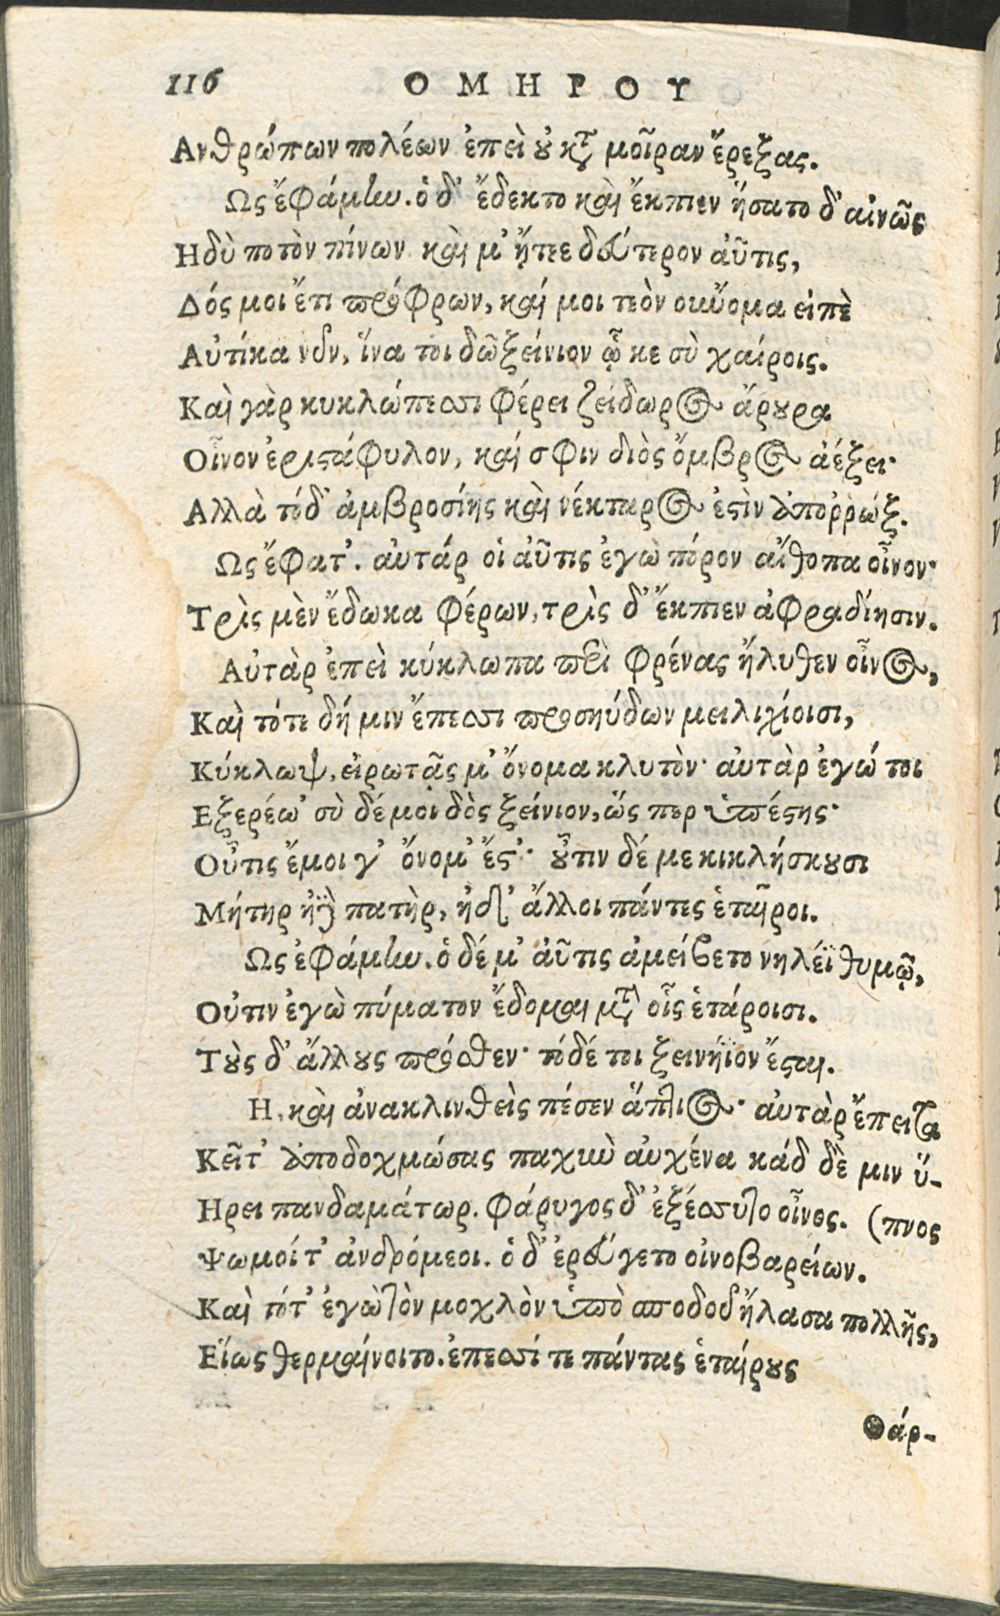 116 ΟΜΗΡΟΥ
Ανθρώπων πολέων ἐπεὶ ȣ κτ̃ μοῖραν ἔρεξας.
Ως ἔφάμην. ὁ δ' ἔδεκτο καὶ ἔκπιεν ἥσατο δ' αἰνῶς
Ηδὺ ποτὸν πίνων καὶ μ' ᾔτεε δεύτερον αὖτις,
Δός μοι ἔτι πρόφρων, καί μοι τεὸν οὔνομα εἰπὲ
Αὐτίκα νῦν, ἵνα τοι δῶ ξείνιον ᾧ κε σὺ χαίροις.
Καὶ γὰρ κυκλώπεσσι φέρει ζείδωρος ἄρȣρα
Οἶνον ἐριστάφυλον, καί σφιν διὸς ὄμβρος ἀέξει·
Αλλὰ τόδ' ἀμβροσίης καὶ νέκταρος ἐστὶν ἀποῤῥώξ.
Ως ἔφατ'. αὐτάρ οἱ αὖτις ἐγὼ πόρον αἴθοπα οἶνον·
Τρὶς μὲν ἔδωκα φέρων, τρὶς δ' ἔκπιεν ἀφραδίησιν.
Αὐτὰρ ἐπεὶ κύκλωπα περὶ φρένας ἤλυθεν οἶνος,
Καὶ τότε δή μιν ἔπεσσι προσηύδων μειλιχίοισι,
Κύκλωψ, εἰρωτᾷς μ' ὄνομα κλυτὸν· αὐτὰρ ἐγώ τοι
Εξερέω' σὺ δέ μοι δὸς ξείνιον, ὥς περ ὑπέστης·
Οὖτις ἔμοι γ' ὄνομ' ἔστ'· ȣ̓͂τιν δέ με κικλήσκȣσι
Μήτηρ ἠῢ πατὴρ, ἠδ' ἄλλοι πάντες ἑταῖροι.
Ως ἐφάμην. ὁ δέ μ' αὖτις ἀμείβετο νηλέϊ θυμῷ,
Οὐτιν ἐγὼ πύματον ἔδομαι μτ̃ οἷς ἑτάροισι.
Τȣ̀ς δ' ἄλλȣς πρόσθεν· τόδέ τοι ξεινήϊον ἔσται.
Η, καὶ ἀνακλινθεὶς πέσεν ὕπτιος· αὐτὰρ ἔπειτα
Κεῖτ' ἀποδοχμώσας παχὺν αὐχένα κάδ δὲ μιν ὕ-
Ηρει πανδαμάτωρ. φάρυγος δ' ἐξέσσυτο οἶνος. (πνος
Ψωμοί τ' ἀνδρόμεοι. ὁ δ' ἐρεύγετο οἰνοβαρείων.
Καὶ τότ' ἐγὼ τὸν μοχλὸν ὑπὸ σποδοῦ ἤλασα πολλῆς,
Εἵως θερμαίνοιτο. ἐπεσσί τε πάντας ἑταίρȣς
Θάρ-